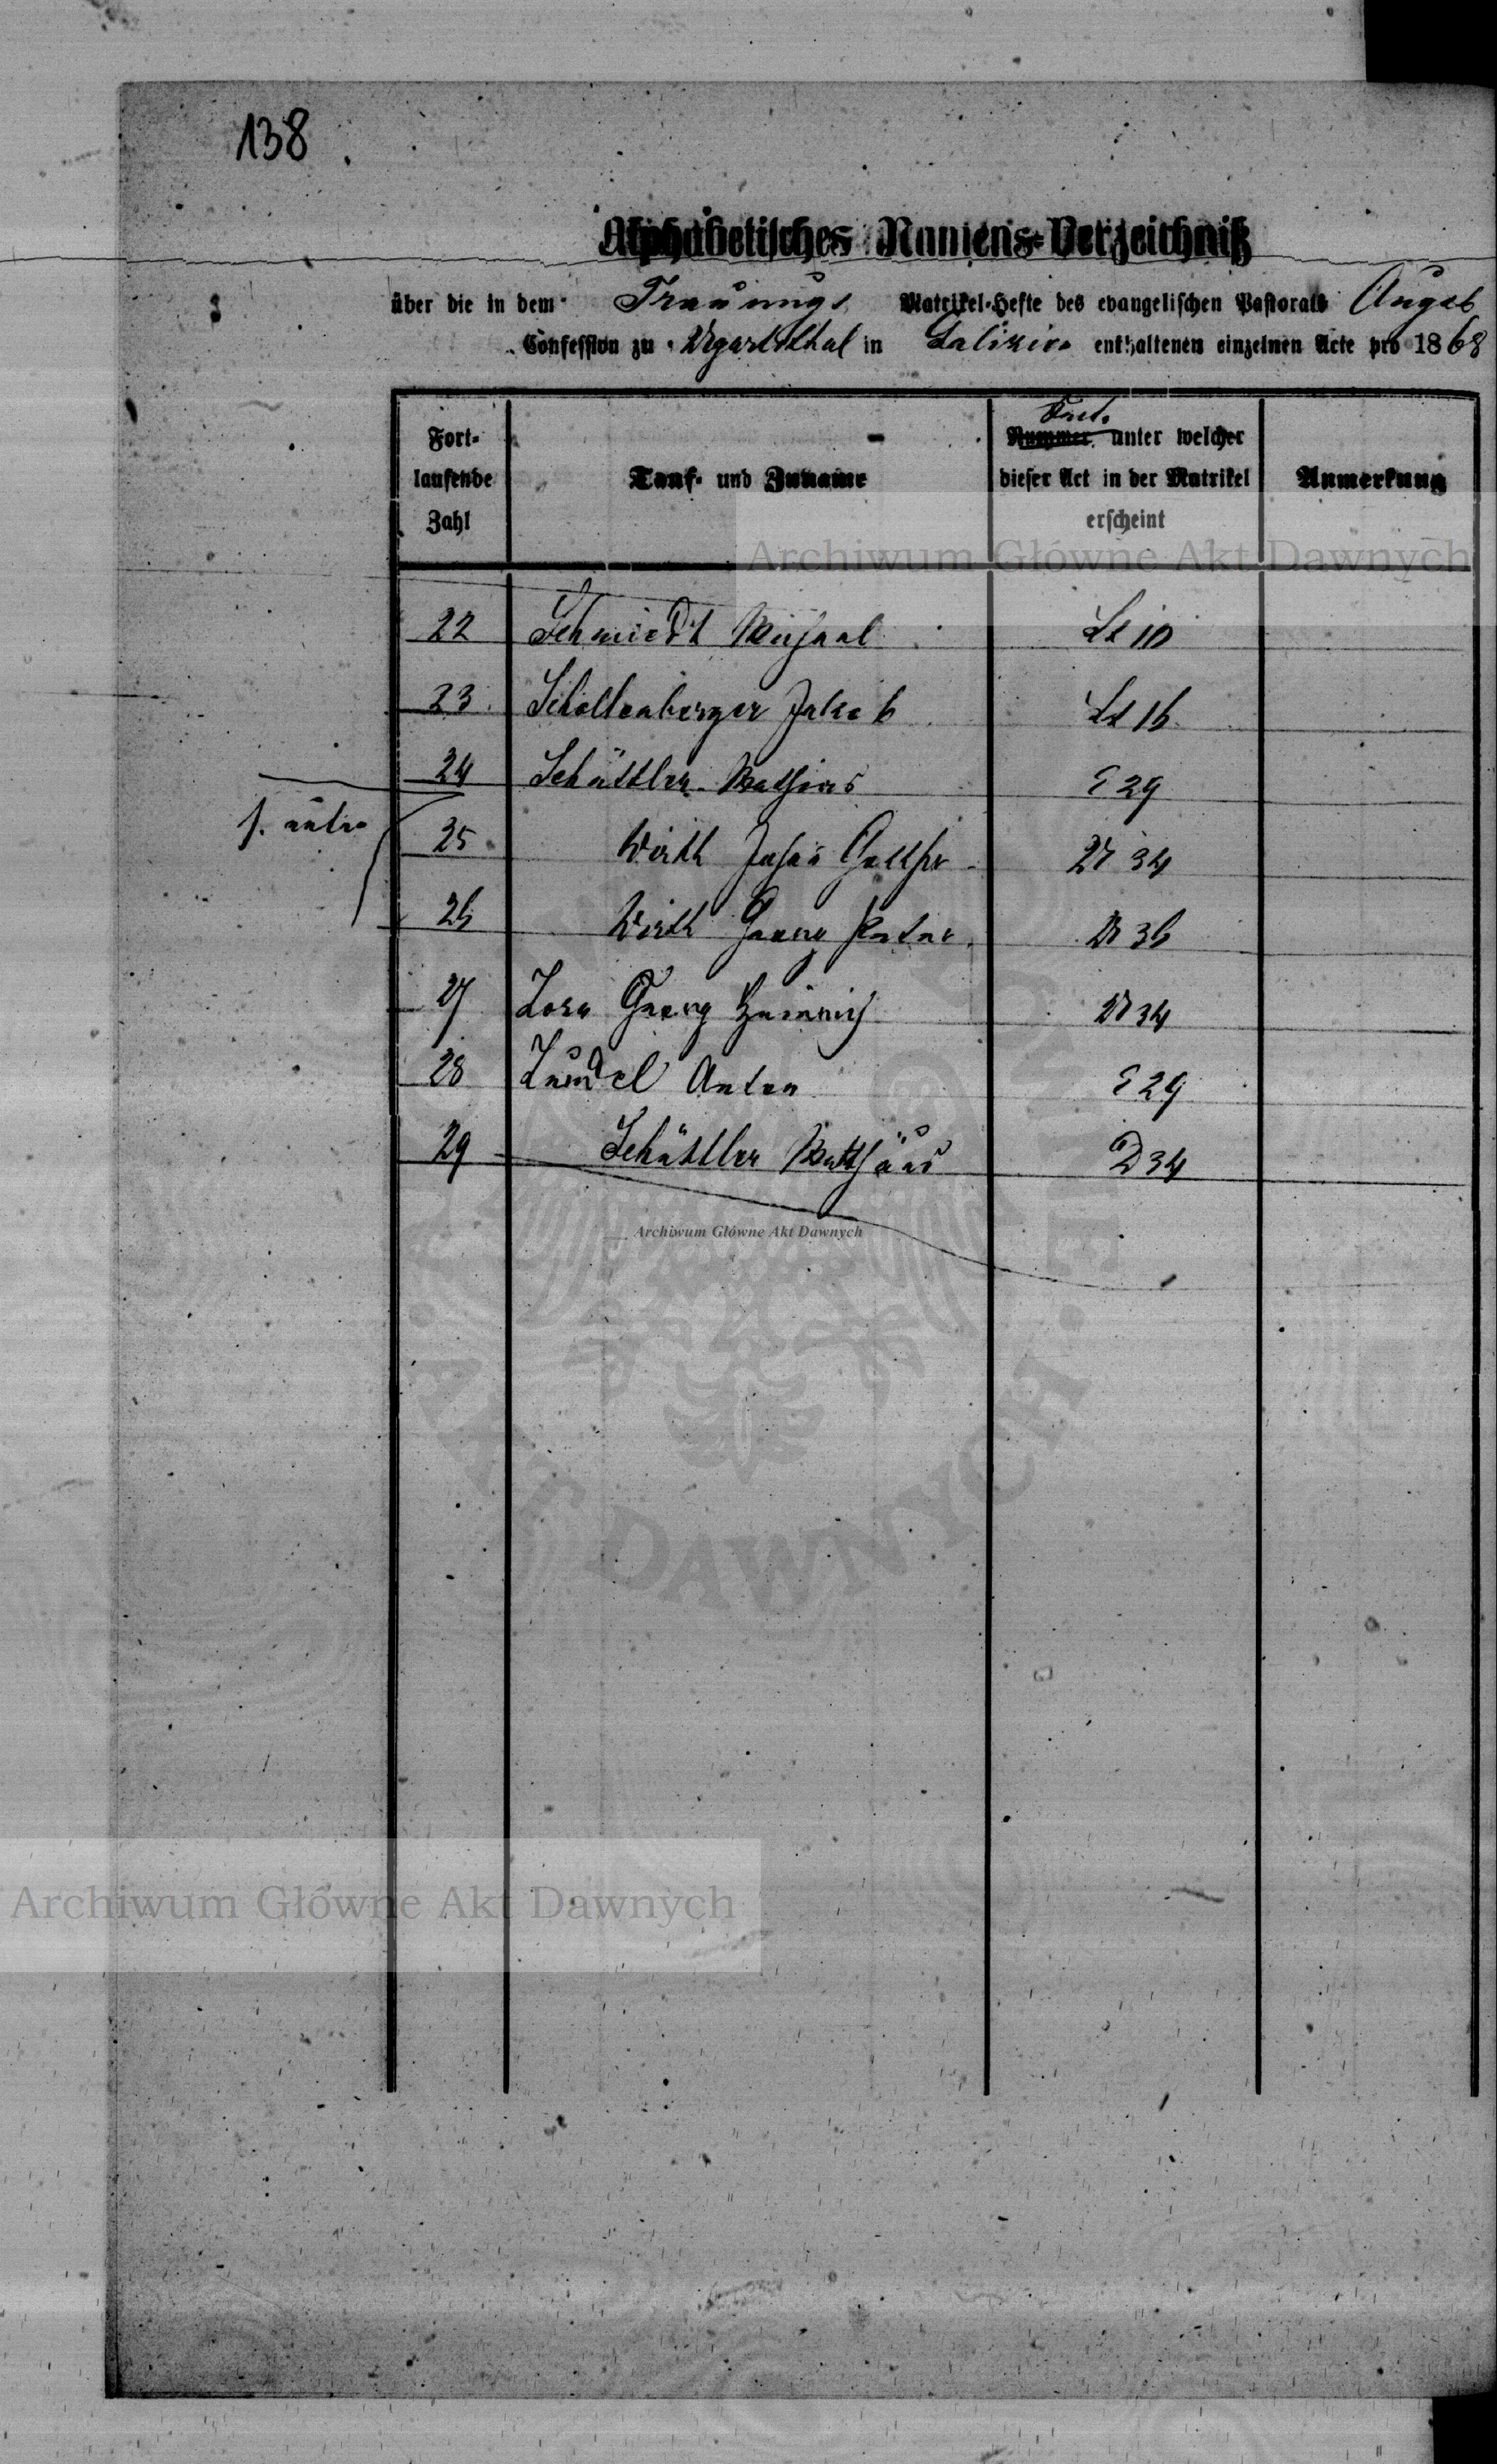 138
Alphabetisches Namens-Verzeichniß
über die in dem Trauungs Matrikel-Hefte des evangelischen Pastorats Augsb
Confession zu Ugartsthal in Galizien enthaltenen einzelnen Acte pro 1868
Fort-
laufende
Zahl
Tauf- und Zuname
Nummer unter welcher
dieser Act in der Matrikel
erscheint
Anmerkung
Archiwum Główne Akt Dawnych
22 Schmiedt Michael 10
23 Schollenberger Jakob 16
24 Schättler Mathias E 29
25 Wirth Johan 34
26 Wirth Georg Peter 36
27 Georg Heinrich 34
28 Zundel Anton E 29
29 Schättler Matthäus D 34
Archiwum Główne Akt Dawnych
AKT DAWNYCH
Archiwum Główne Akt Dawnych